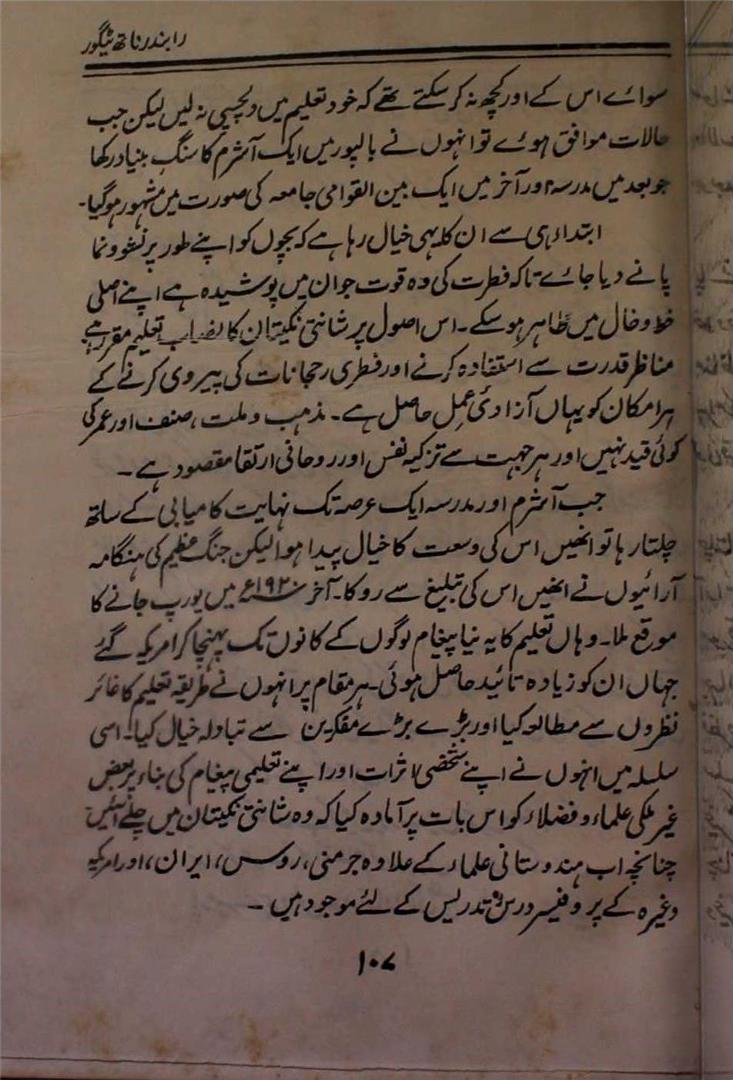 رابندر ناتھ ٹیگور
سوائے اس کے اور کچھ نہ کر سکتے تھے کہ خود تعلیم میں دلچسپی نہ لیں لیکن جب
حالات موافق ہوئے تو انہوں نے بالپور میں ایک آشرم کا سنگِ بنیاد رکھا
جو بعد میں مدرسہ اور آخر میں ایک بین القوامی جامعہ کی صورت میں مشہور ہو گیا۔
ابتداء ہی سے ان کا یہی خیال رہا ہے کہ بچوں کو اپنے طور پر نشوونما
پانے دیا جائے تاکہ فطرت کی وہ قوت جو ان میں پوشیدہ ہے اپنے اصلی
خدوخال میں ظاہر ہو سکے۔ اس اصول پر شانتی نکیتان کا نصاب تعلیم مقرر ہے
مناظر قدرت سے استفادہ کرنے اور فطری رجحانات کی پیروی کرنے کے
ہر امکان کو یہاں آزادئ عمل حاصل ہے۔ مذہب و ملت، صنف اور عمر کی
کوئی قید نہیں اور ہر جہت سے تزکیہ نفس اور روحانی ارتقا مقصود ہے۔
جب آشرم اور مدرسہ ایک عرصہ تک نہایت کامیابی کے ساتھ
چلتا رہا تو انھیں اس کی وسعت کا خیال پیدا ہوا لیکن جنگ عظیم کی ہنگامہ
آرائیوں نے انھیں اس کی تبلیغ سے روکا۔ آخر ۱۹۲۰ء میں یورپ جانے کا
موقع ملا۔ وہاں تعلیم کا یہ نیا پیغام لوگوں کے کانوں تک پہنچا کر امریکہ گئے
جہاں ان کو زیادہ تائید حاصل ہوئی۔ ہر مقام پر انہوں نے طریقہ تعلیم کا غائر
نظروں سے مطالعہ کیا اور بڑے بڑے مفکرین سے تبادلہ خیال کیا۔ اسی
سلسلہ میں انہوں نے اپنے شخصی اثرات اور اپنے تعلیمی پیغام کی بناء پر بعض
غیر ملکی علماء و فضلاء کو اس بات پر آمادہ کیا کہ وہ شانتی نکیتان میں چلے آئیں
چنانچہ اب ہندوستانی علماء کے علاوہ جرمنی، روس، ایران، اور امریکہ
وغیرہ کے پروفیسر درس و تدریس کے لئے موجود ہیں۔
۱۰۷